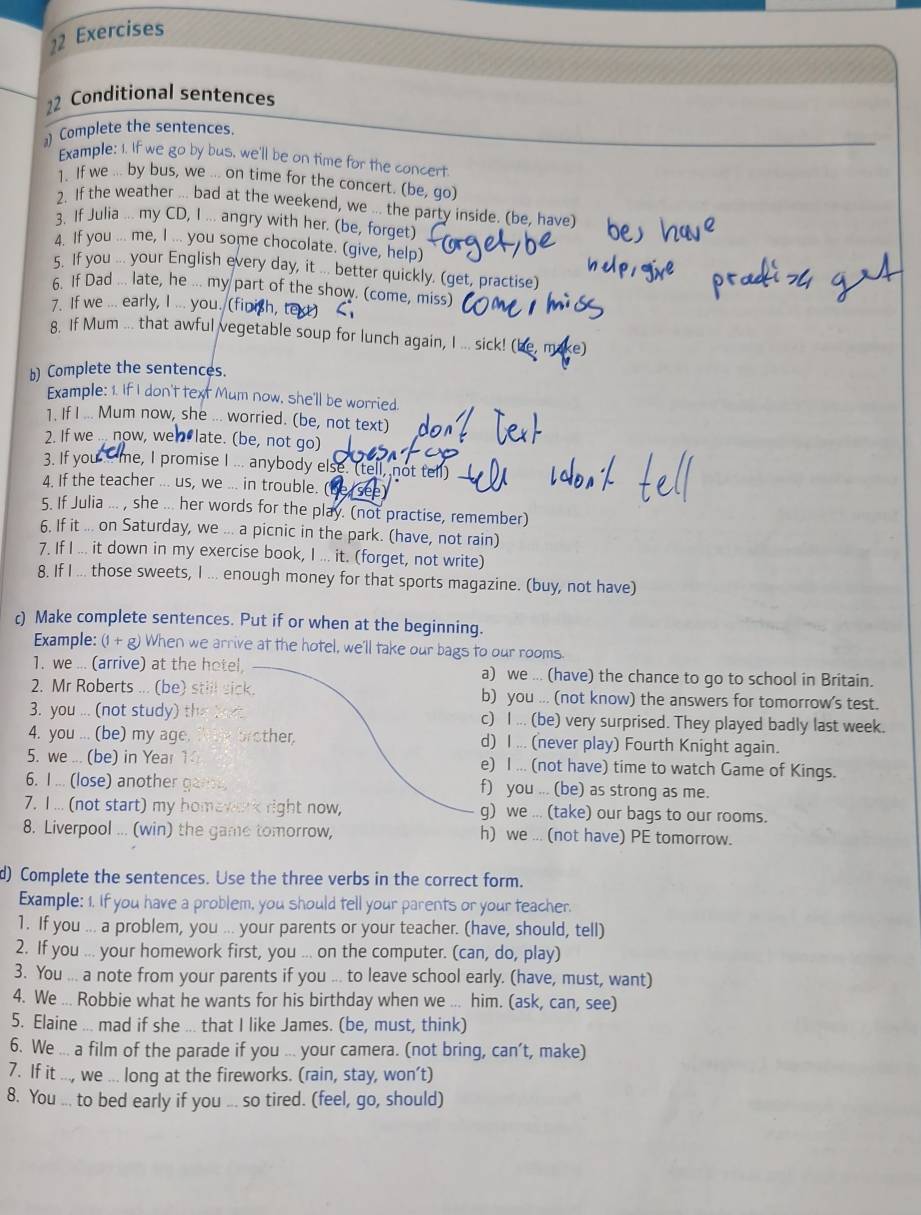 22 Exercises
22 Conditional sentences
a) Complete the sentences.
Example: 1. If we go by bus, we'll be on time for the concert.
1. If we ... by bus, we ... on time for the concert. (be, go)
2. If the weather ... bad at the weekend, we ... the party inside. (be, have) be, have
3. If Julia ... my CD, I ... angry with her. (be, forget) forget, be
4. If you ... me, I ... you some chocolate. (give, help) help, give
5. If you ... your English every day, it ... better quickly. (get, practise) get
6. If Dad ... late, he ... my part of the show. (come, miss) come, miss
7. If we ... early, I ... you. (finish, text)
8. If Mum ... that awful vegetable soup for lunch again, I ... sick! (be, make)
b) Complete the sentences.
Example: 1. If I don't text Mum now, she'll be worried.
1. If I ... Mum now, she ... worried. (be, not text) don't text
2. If we ... now, we late. (be, not go) doesn't go
3. If you me, I promise I ... anybody else. (tell, not tell) tell I don't tell
4. If the teacher ... us, we ... in trouble. (be, see)
5. If Julia ... , she ... her words for the play. (not practise, remember)
6. If it ... on Saturday, we ... a picnic in the park. (have, not rain)
7. If I ... it down in my exercise book, I ... it. (forget, not write)
8. If I ... those sweets, I ... enough money for that sports magazine. (buy, not have)
c) Make complete sentences. Put if or when at the beginning.
Example: (1 + g) When we arrive at the hotel, we'll take our bags to our rooms.
1. we ... (arrive) at the hotel,
2. Mr Roberts ... (be) still sick,
3. you ... (not study) the
4. you ... (be) my age, brother,
5. we ... (be) in Year
6. I ... (lose) another game,
7. I ... (not start) my homework right now,
8. Liverpool ... (win) the game tomorrow,
a) we ... (have) the chance to go to school in Britain.
b) you ... (not know) the answers for tomorrow's test.
c) I ... (be) very surprised. They played badly last week.
d) I ... (never play) Fourth Knight again.
e) I ... (not have) time to watch Game of Kings.
f) you ... (be) as strong as me.
g) we ... (take) our bags to our rooms.
h) we ... (not have) PE tomorrow.
d) Complete the sentences. Use the three verbs in the correct form.
Example: 1. If you have a problem, you should tell your parents or your teacher.
1. If you ... a problem, you ... your parents or your teacher. (have, should, tell)
2. If you ... your homework first, you ... on the computer. (can, do, play)
3. You ... a note from your parents if you ... to leave school early. (have, must, want)
4. We ... Robbie what he wants for his birthday when we ... him. (ask, can, see)
5. Elaine ... mad if she ... that I like James. (be, must, think)
6. We ... a film of the parade if you ... your camera. (not bring, can't, make)
7. If it ..., we ... long at the fireworks. (rain, stay, won't)
8. You ... to bed early if you ... so tired. (feel, go, should)